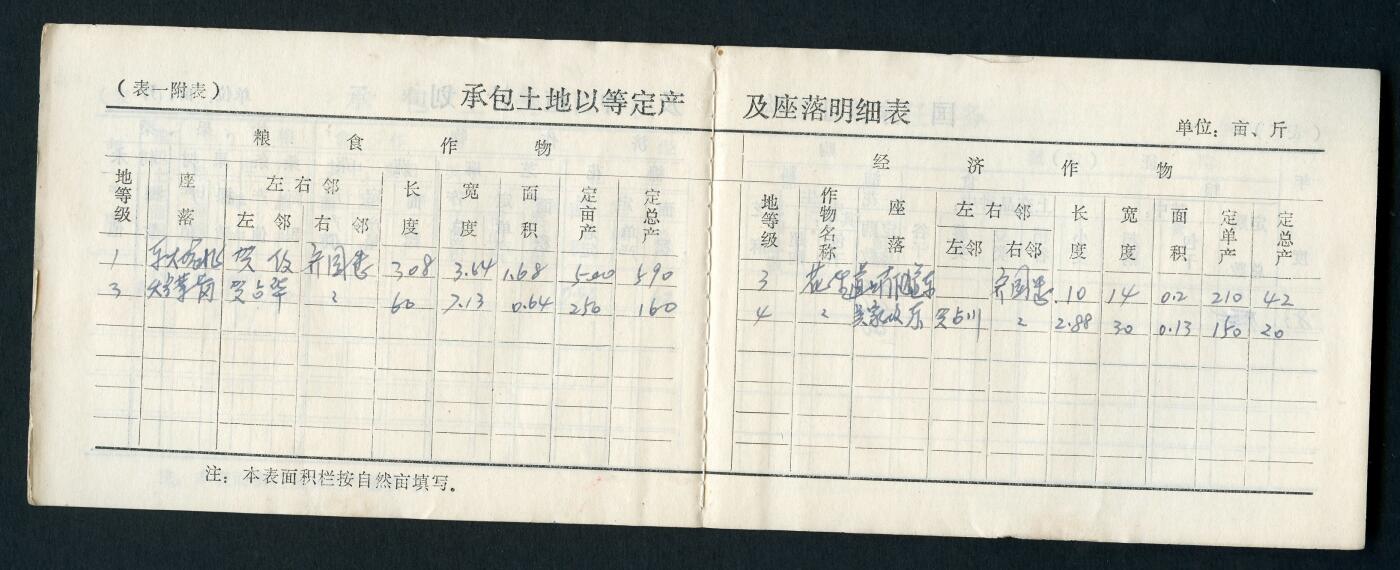 （表一附表）
承包土地以等定产及座落明细表
单位：亩、斤
粮食作物
地等级 座落 左右邻 长度 宽度 面积 定亩产 定总产
左邻 右邻
1 贺 308 3.64 1.68 500 590
3 贺占华 〃 60 7.13 0.64 250 160
经济作物
地等级 作物名称 座落 左右邻 长度 宽度 面积 定单产 定总产
左邻 右邻
3 花生 10 14 0.2 210 42
4 〃 贺占川 〃 2.88 30 0.13 150 20
注：本表面积栏按自然亩填写。